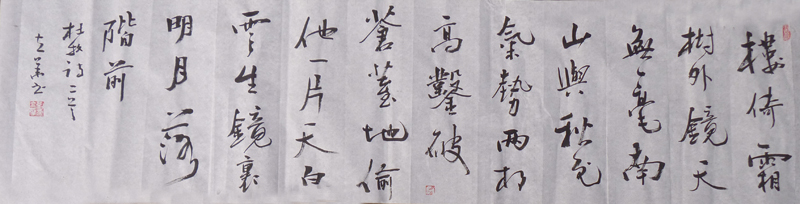 樓倚霜
樹外鏡天
無一毫南
山與秋色
氣勢兩相
高鑿破
蒼苔地偷
他一片天白
雲生鏡裏
明月落
階前
杜牧詩二首